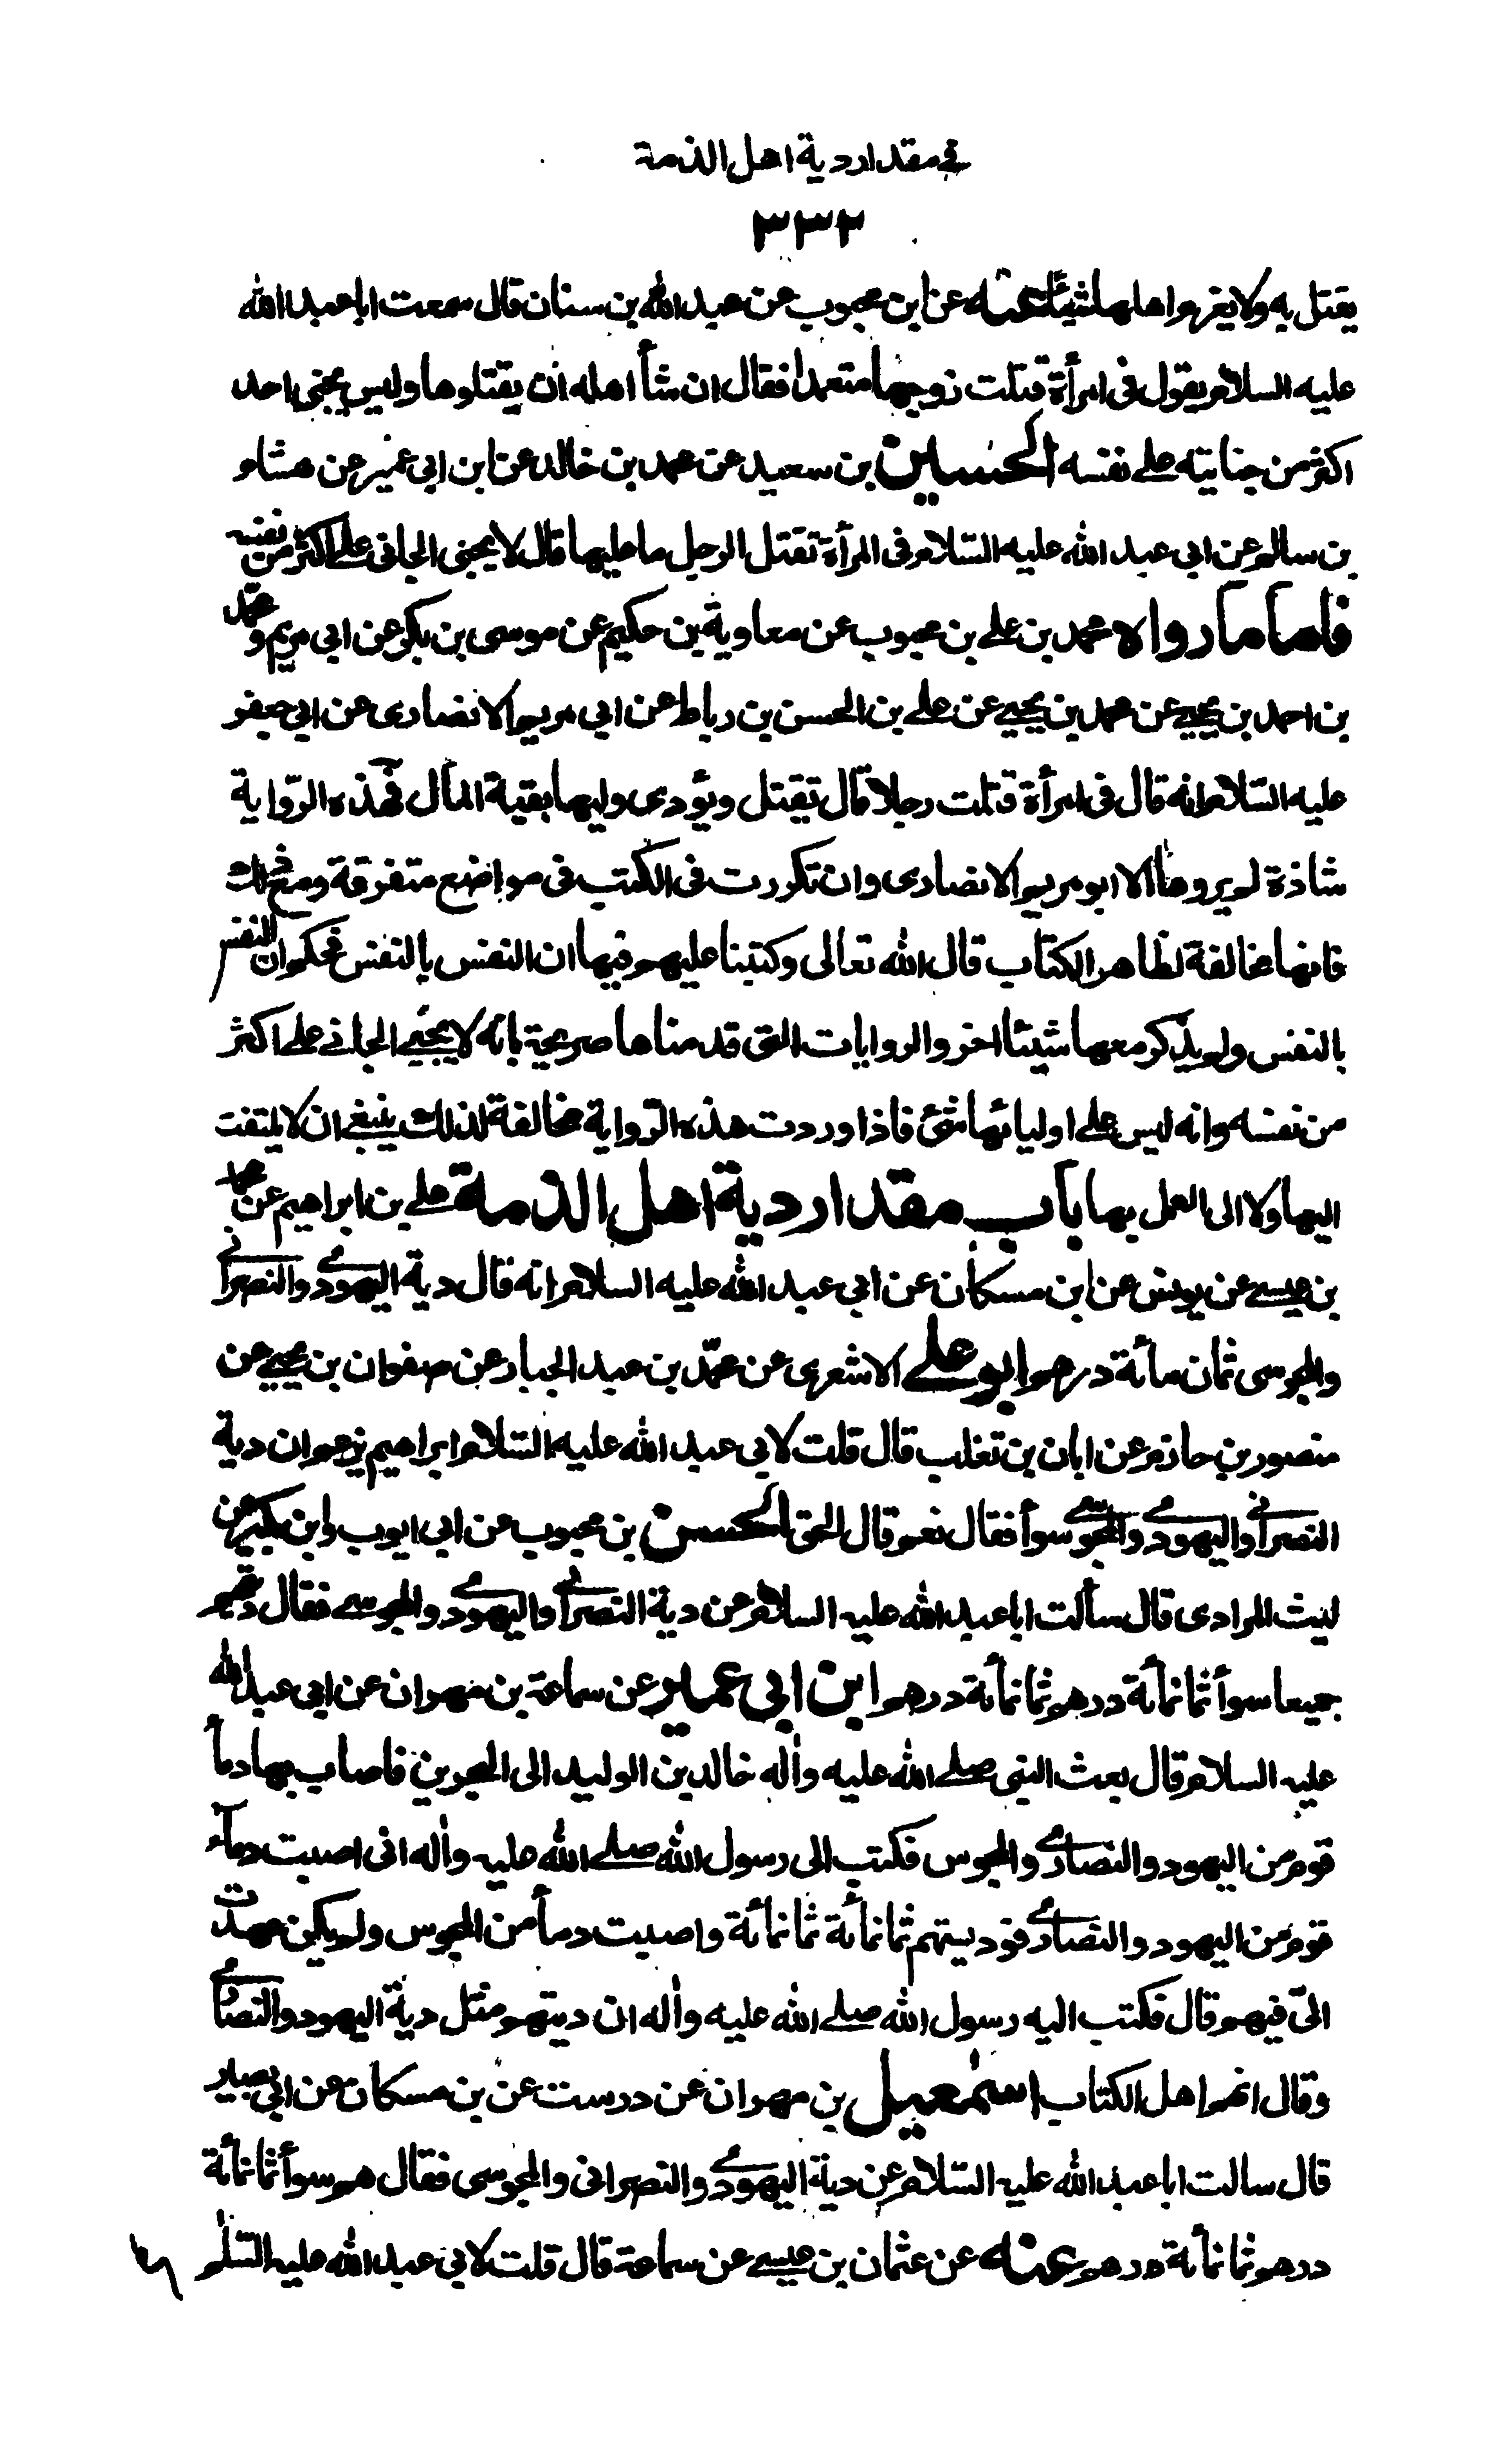 في مقدار دية اهل الذمة
٣٣٢
يقتل به ولا يغرم اهلها شيئا عنه عن ابن محبوب عن عبد الله بن سنان قال سمعت ابا عبد الله
عليه السلام يقول فى امرأة قتلت زوجها متعمدا فقال ان شأ اهله ان يقتلوها وليس يجنى احد
اكثر من جنايته على نفسه الحسين بن سعيد عن محمد بن خالد عن ابن ابى عمير عن هشام
بن سالم عن ابى عبد الله عليه السّلام فى المرأة تقتل الرجل ما عليها قال لا يجنى الجانى على اكثر من نفسه
فاما ما رواه محمد بن على بن محبوب عن معاوية بن حكيم عن موسى بن بكر عن ابى مريم و محمّد
بن احمد بن يحيى عن محمد بن يحيى عن على بن الحسن بن رباط عن ابى مريم الانصارى عن ابى جعفر
عليه السّلام انه قال فى امرأة قتلت رجلا قال تقتل ويؤدى وليها بقية المال فهذه الرّواية
شاذة لم يروها الا ابو مريم الانصارى وان تكررت فى الكتب فى مواضع متفرقة ومع ذلك
فانها مخالفة لظاهر الكتاب قال الله تعالى وكتبنا عليهم فيها ان النفس بالنفس فحكم ان النفس
بالنفس ولم يذكر معها شيئا اخر والروايات التى قدمناها صريحة بانه لا يجنى الجانى على اكثر
من نفسه وانه ليس على اوليائها شئ فاذا وردت هذه الرّواية مخالفة لذلك ينبغى ان لا يلتفت
اليها ولا الى العمل بها باب مقدار دية اهل الذمة على بن ابراهيم عن محمد
بن عيسى عن يونس عن ابن مسكان عن ابى عبد الله عليه السلام انه قال دية اليهودى والنصرانى
والمجوسى ثمان مائة درهم ابو على الاشعرى عن محمّد بن عبد الجبار عن صفوان بن يحيى عن
منصور بن حازم عن ابان بن تغلب قال قلت لابى عبد الله عليه السّلام ابراهيم يزعم ان دية
النصرانى واليهودى والمجوسى سوأ فقال نعم قال الحق الحسن بن محبوب عن ابى ايوب وابن بكير عن
ليث المرادى قال سألت ابا عبد الله عليه السلام عن دية النصرانى واليهودى والمجوسى فقال ديتهم
جميعا سوأ ثمانمائة درهم ثمانمائة درهم ابن ابى عمير عن سماعة بن مهران عن ابى عبد الله
عليه السلام قال بعث النبى صلى الله عليه وآله خالد بن الوليد الى البحرين فاصاب بها دمأ
قوم من اليهود والنصارى والمجوس فكتب الى رسول الله صلى الله عليه وآله انى اصبت دمآء
قوم من اليهود والنصارى فوديتهم ثمانمائة ثمانمائة واصبت دمأ من المجوس ولم يكن عهدت
الىّ فيهم قال فكتب اليه رسول الله صلى الله عليه وآله ان ديتهم مثل دية اليهود والنصارى
وقال انهم اهل الكتاب اسمعيل بن مهران عن درست عن بن مسكان عن ابى بصير
قال سالت ابا عبد الله عليه السّلام عن دية اليهودى والنصرانى والمجوسى فقال هم سوأ ثمانمائة
درهم ثمانمائة درهم عنه عن عثمان بن عيسى عن سماعة قال قلت لابى عبد الله عليه السّلم